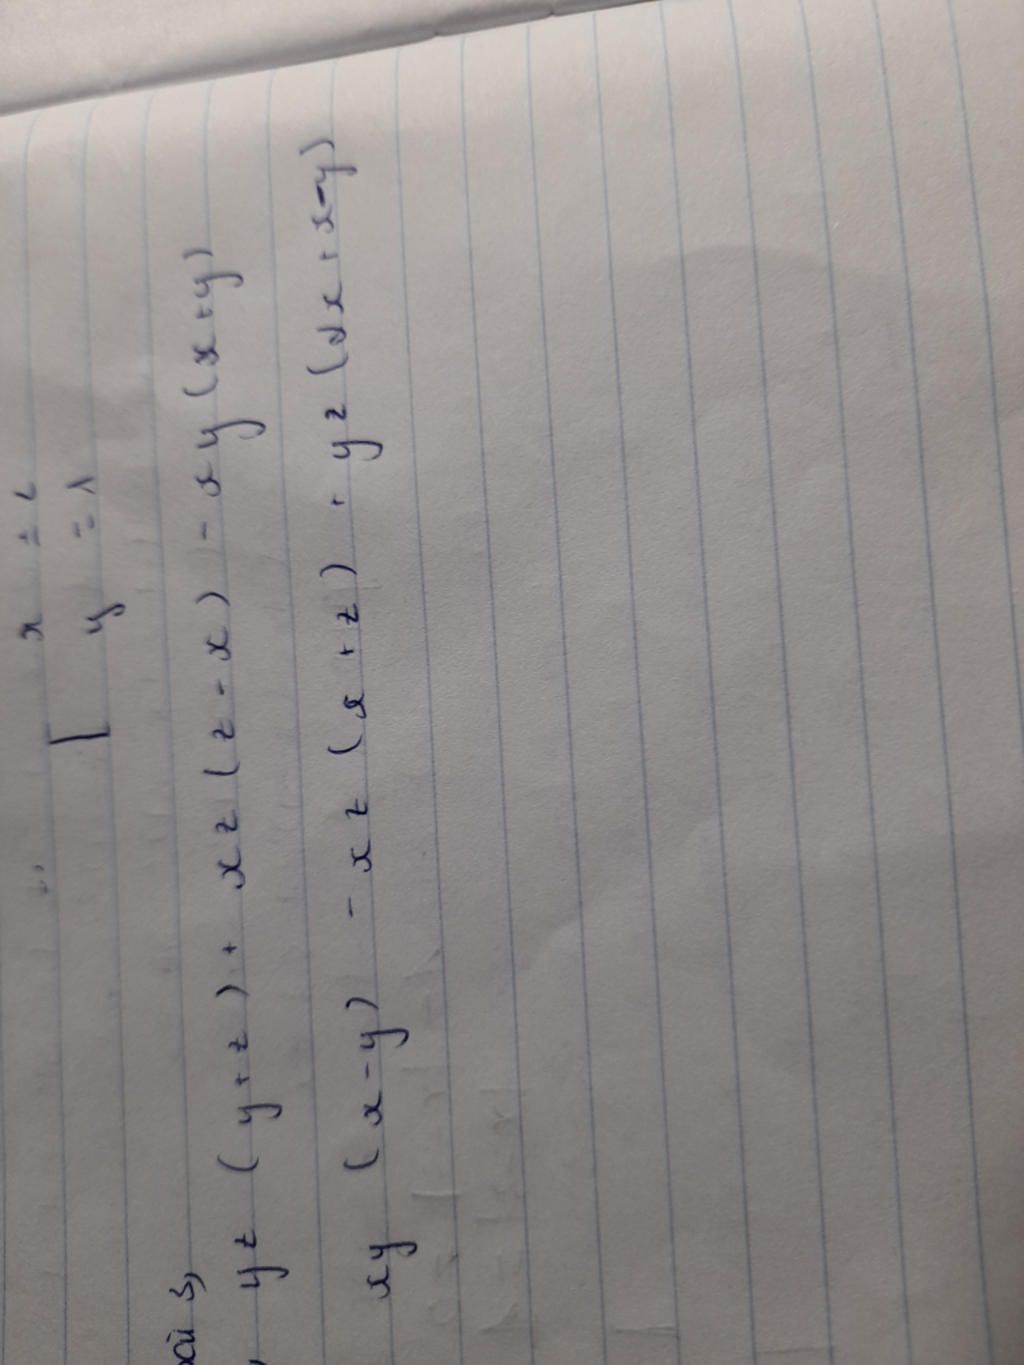 x = 2
[ y = 1
bài 3,
yz (y+z) + xz (z-x) - xy (x+y)
xy (x-y) - xz (x+z) + yz (2x+x-y)